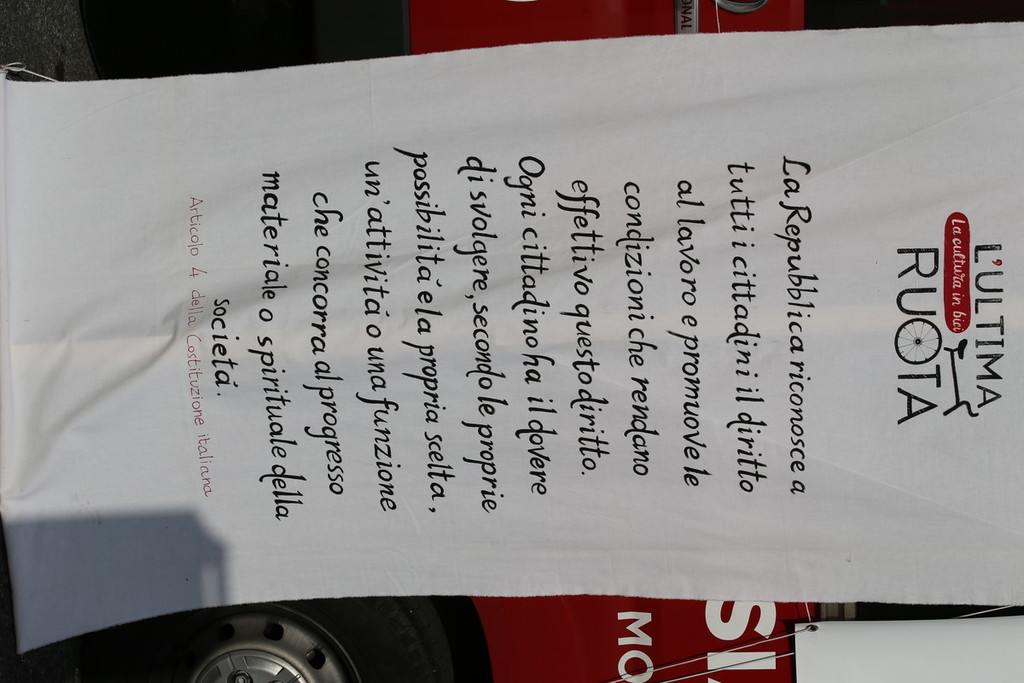 L'ULTIMA
la cultura in bici
RUOTA
La Repubblica riconosce a
tutti i cittadini il diritto
al lavoro e promuove le
condizioni che rendano
effettivo questo diritto.
Ogni cittadino ha il dovere
di svolgere, secondo le proprie
possibilitá e la propria scelta,
un'attivitá o una funzione
che concorra al progresso
materiale o spirituale della
societá.
Articolo 4 della Costituzione italiana
ONAL
MO